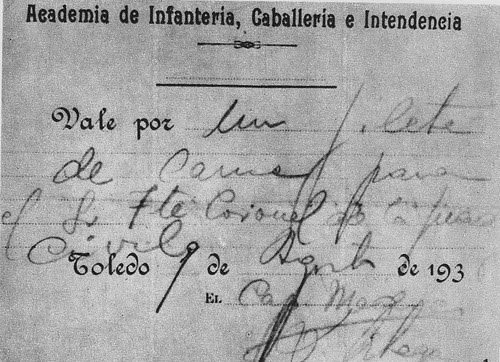 Academia de Infantería, Caballería e Intendencia
Vale por un filete
de carne para
el Sr Tte Coronel de la Guardia
Civil
Toledo 7 de Agosto de 193
EL Cap. Mayor